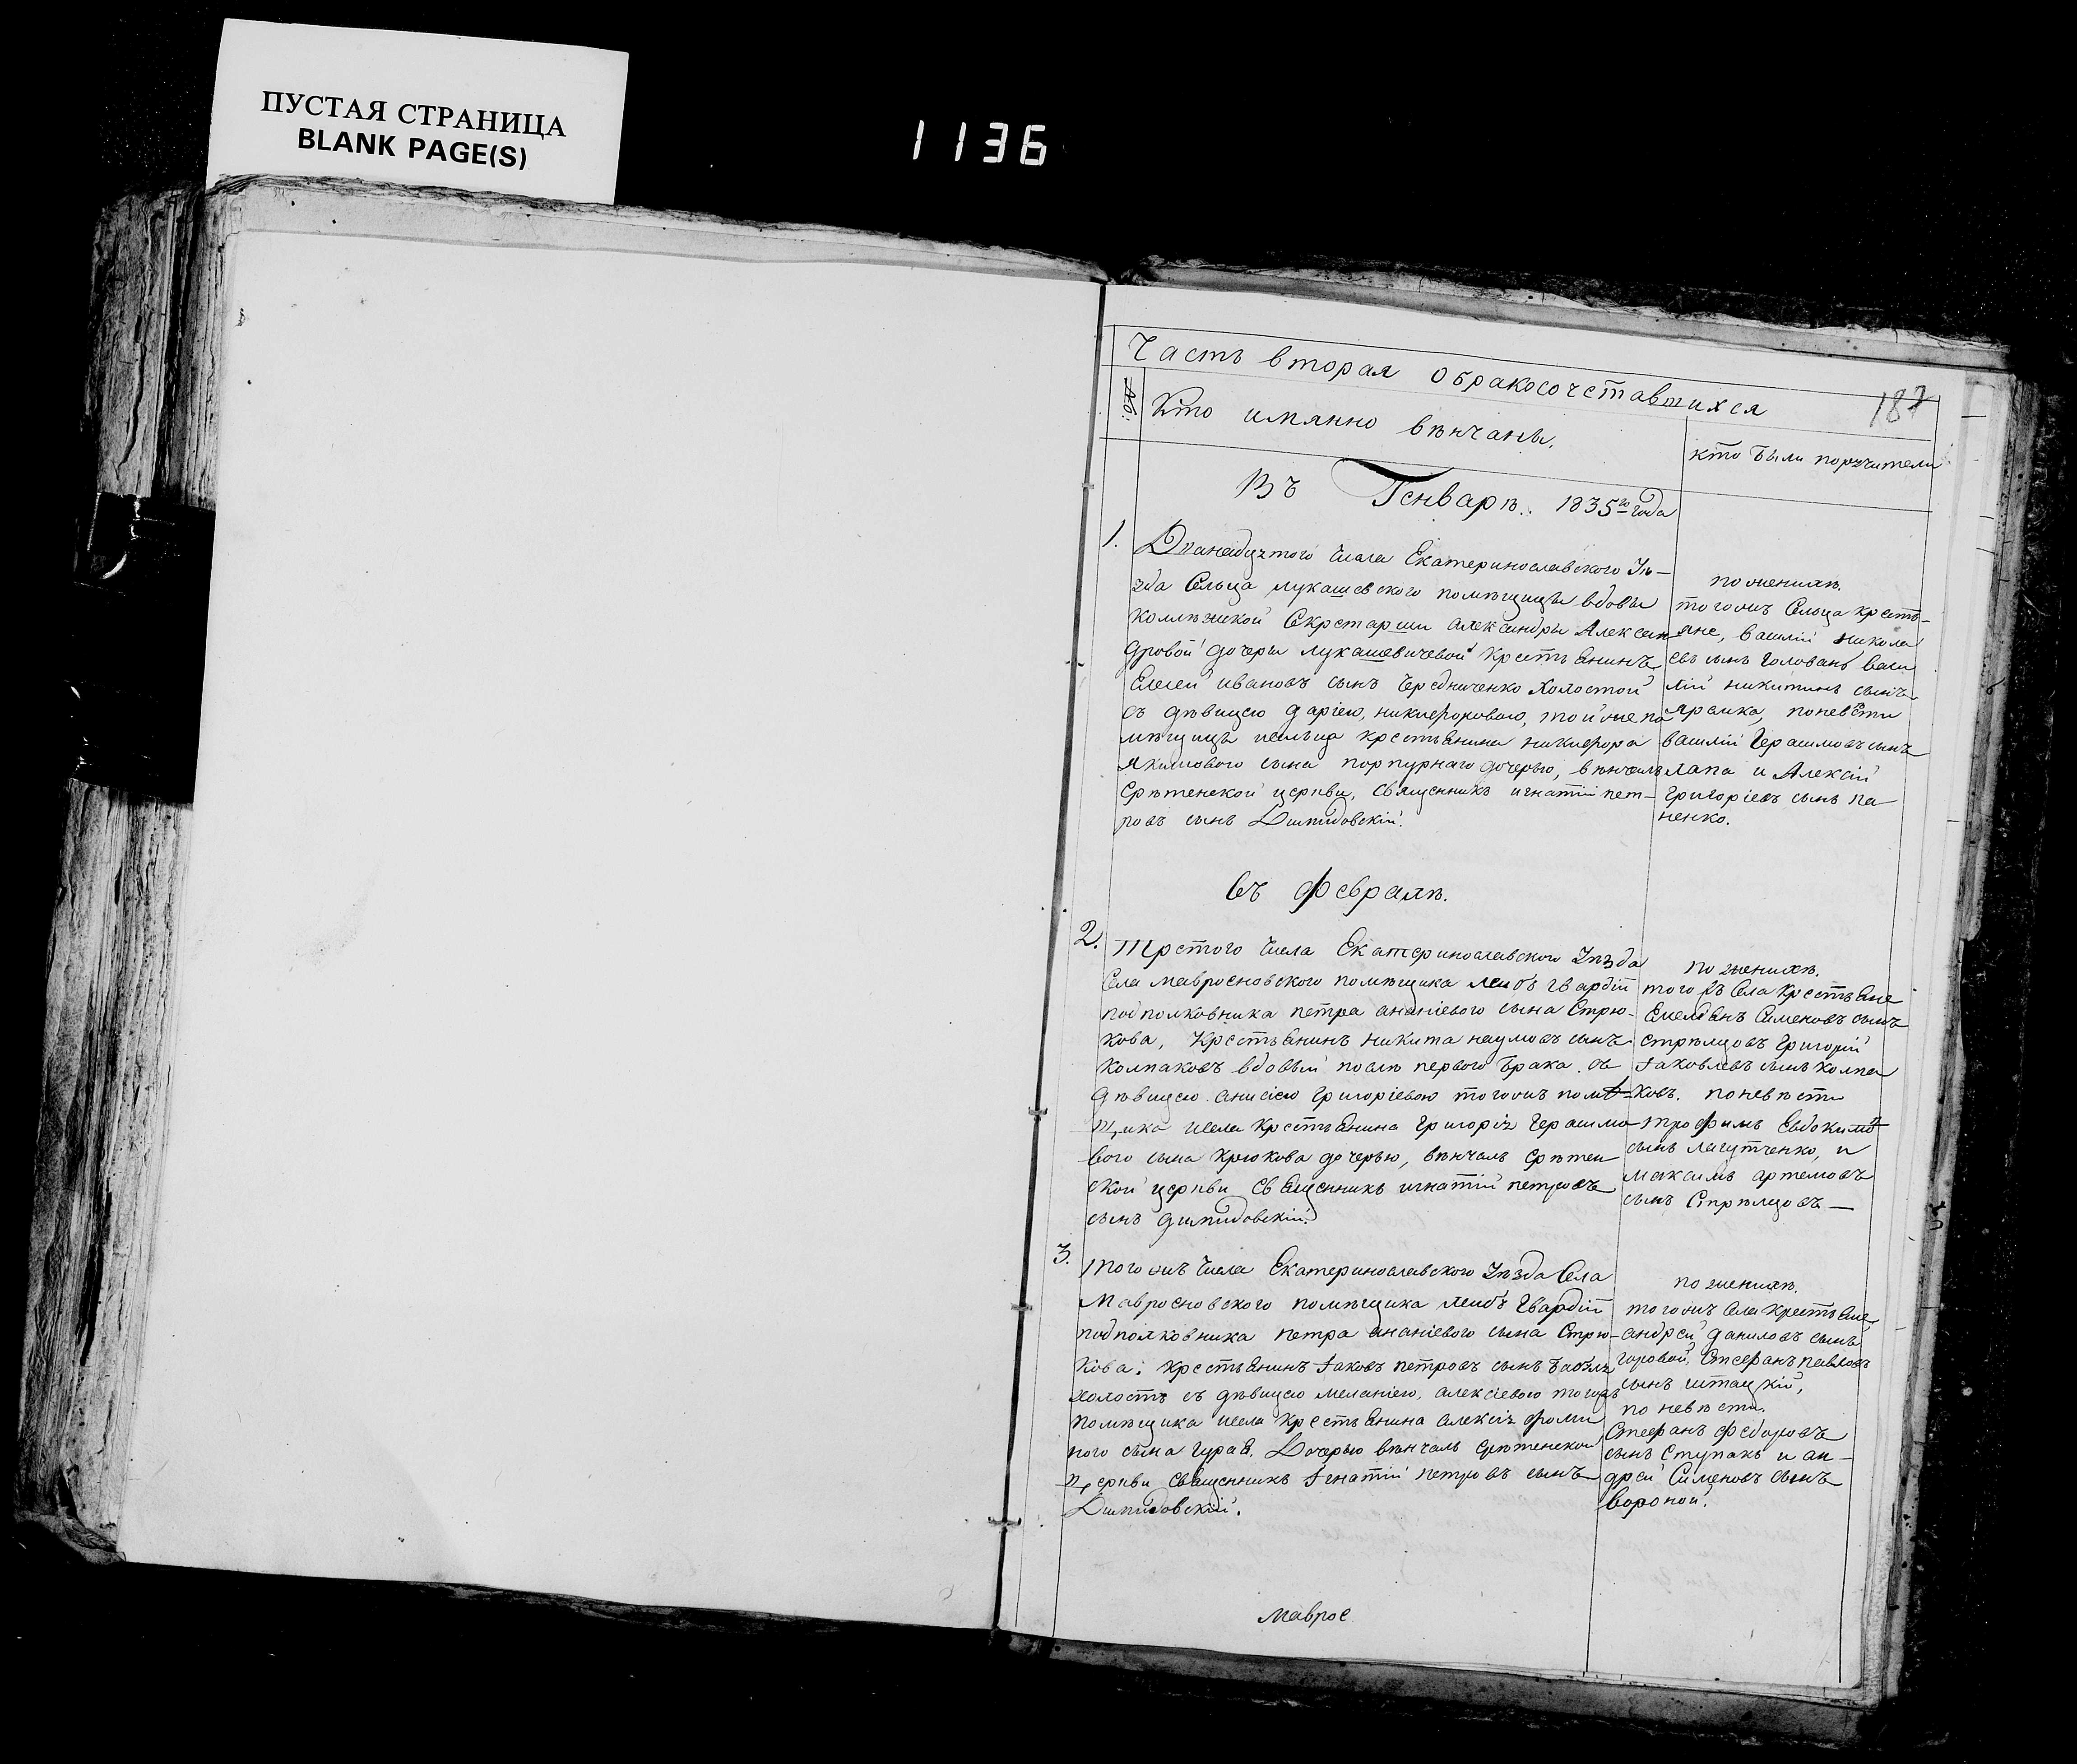 ПУСТАЯ СТРАНИЦА
BLANK PAGE(S)
1136
Часть вторая обракосочетавшихся
187
№:
Кто имянно вѣнчаны.
кто были поручители
Въ Генварѣ. 1835го года
1.
Дванадцятого Числа Екатеринославского Уѣ-
зда Сельца лукашевского помѣщицы вдовы
Коллѣжской Секретарши александры Алексан
дровой дочери лукашевичевой крестьянинъ
Елисей ивановъ сынъ Чередниченко Холостой
съ дѣвицею даріею, никифоровою, тойже по
мѣщицы исельца крестьянина никифора
якимового сына порпурнаго дочерью, вѣнчалъ
Срѣтенской церкви, священникъ игнатій пет-
ровъ сынъ Демидовскій.
по женихѣ.
тогожъ Сельца крестъ-
яне, василій никола
евъ сынъ головань васи
лій никитинъ сынъ
ярёмка, поневѣсти
василій Герасимовъ сынъ
лапа и Алексій
григоріевъ сынъ па
ненко.
въ февралѣ.
2.
Третого Числа Екатеринославского Уѣзда
Села мавроеновского помѣщика лейбъ гвардій
подполковника петра ананіевого сына Стрю-
кова, Крестьянинъ никита наумовъ сынъ
Колпаковъ вдовый послѣ первого брака. съ
дѣвицею анисіею григоріевою тогожъ помѣ-
щика исела крестьянина григорія Герасимо
вого сына Крюкова дочерью, вѣнчалъ срѣтен
ской церкви священникъ игнатій петровъ
сынъ демидовскій.
по женихѣ.
того жъ Села крестьяне
Емельянъ Сименовъ сынъ
стрѣлцовъ григорій
Іаковлевъ сынъ колпа
ковъ. поневѣсти
трофимъ Евдокимо
сынъ лагутченко, и
максимъ артемовъ
сынъ Стрѣлцовъ —
3.
Того жъ Числа Екатеринославского Уѣзда Села
Мавроеновского помѣщика лейбъ Гвардій
подполковника петра ананіевого сына Стрю-
кова: крестьянинъ Іаковъ петровъ сынъ
холостъ съ дѣвицею меланіею, алексіевою тогожъ
помѣщика исела крестьянина алексія фоми
ного сына Дочерью вѣнчалъ срѣтенской
церкви священникъ Ігнатій петровъ сынъ
Демидовскій.
по женихѣ.
тогожъ села крестьяне
андрей даниловъ сынъ
горовой, Стефанъ павловъ
сынъ штацкій,
по невѣсти.
Стефанъ федоровъ
сынъ ступакъ и ан-
дрей Сименовъ сынъ
вороной.
Маврое